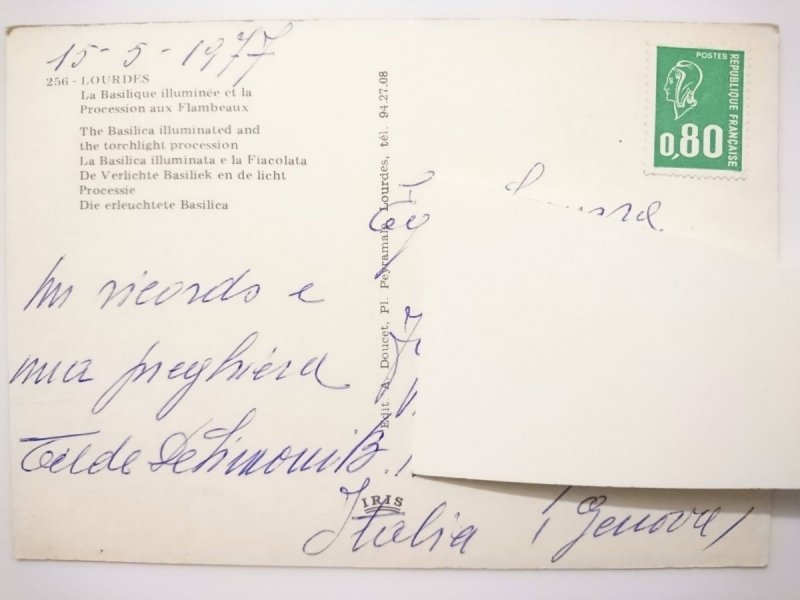 15-5-1977
256 - LOURDES
La Basilique illuminée et la
Procession aux Flambeaux
The Basilica illuminated and
the torchlight procession
La Basilica illuminata e la Fiacolata
De Verlichte Basiliek en de licht
Processie
Die erleuchtete Basilica
un ricordo e
una preghiera
Tilde De Simoni B.
Edit. A. Doucet, Pl. Peyramale Lourdes, tél. 94.27.08
IRIS
POSTES
REPUBLIQUE FRANÇAISE
0,80
Italia (Genova)